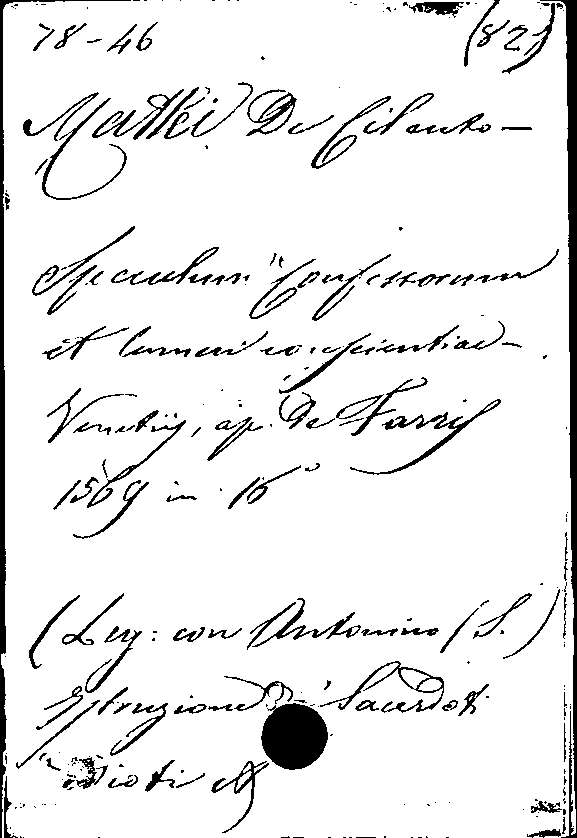 78-46 (821)
Mattei De Cilento-
Speculum Confessorum
et lumen conscientiae-
Venetiis, ap. de Farris
1569 in 16°
(Leg: con Antonino (S.)
Istruzione di Sacerdoti
idioti